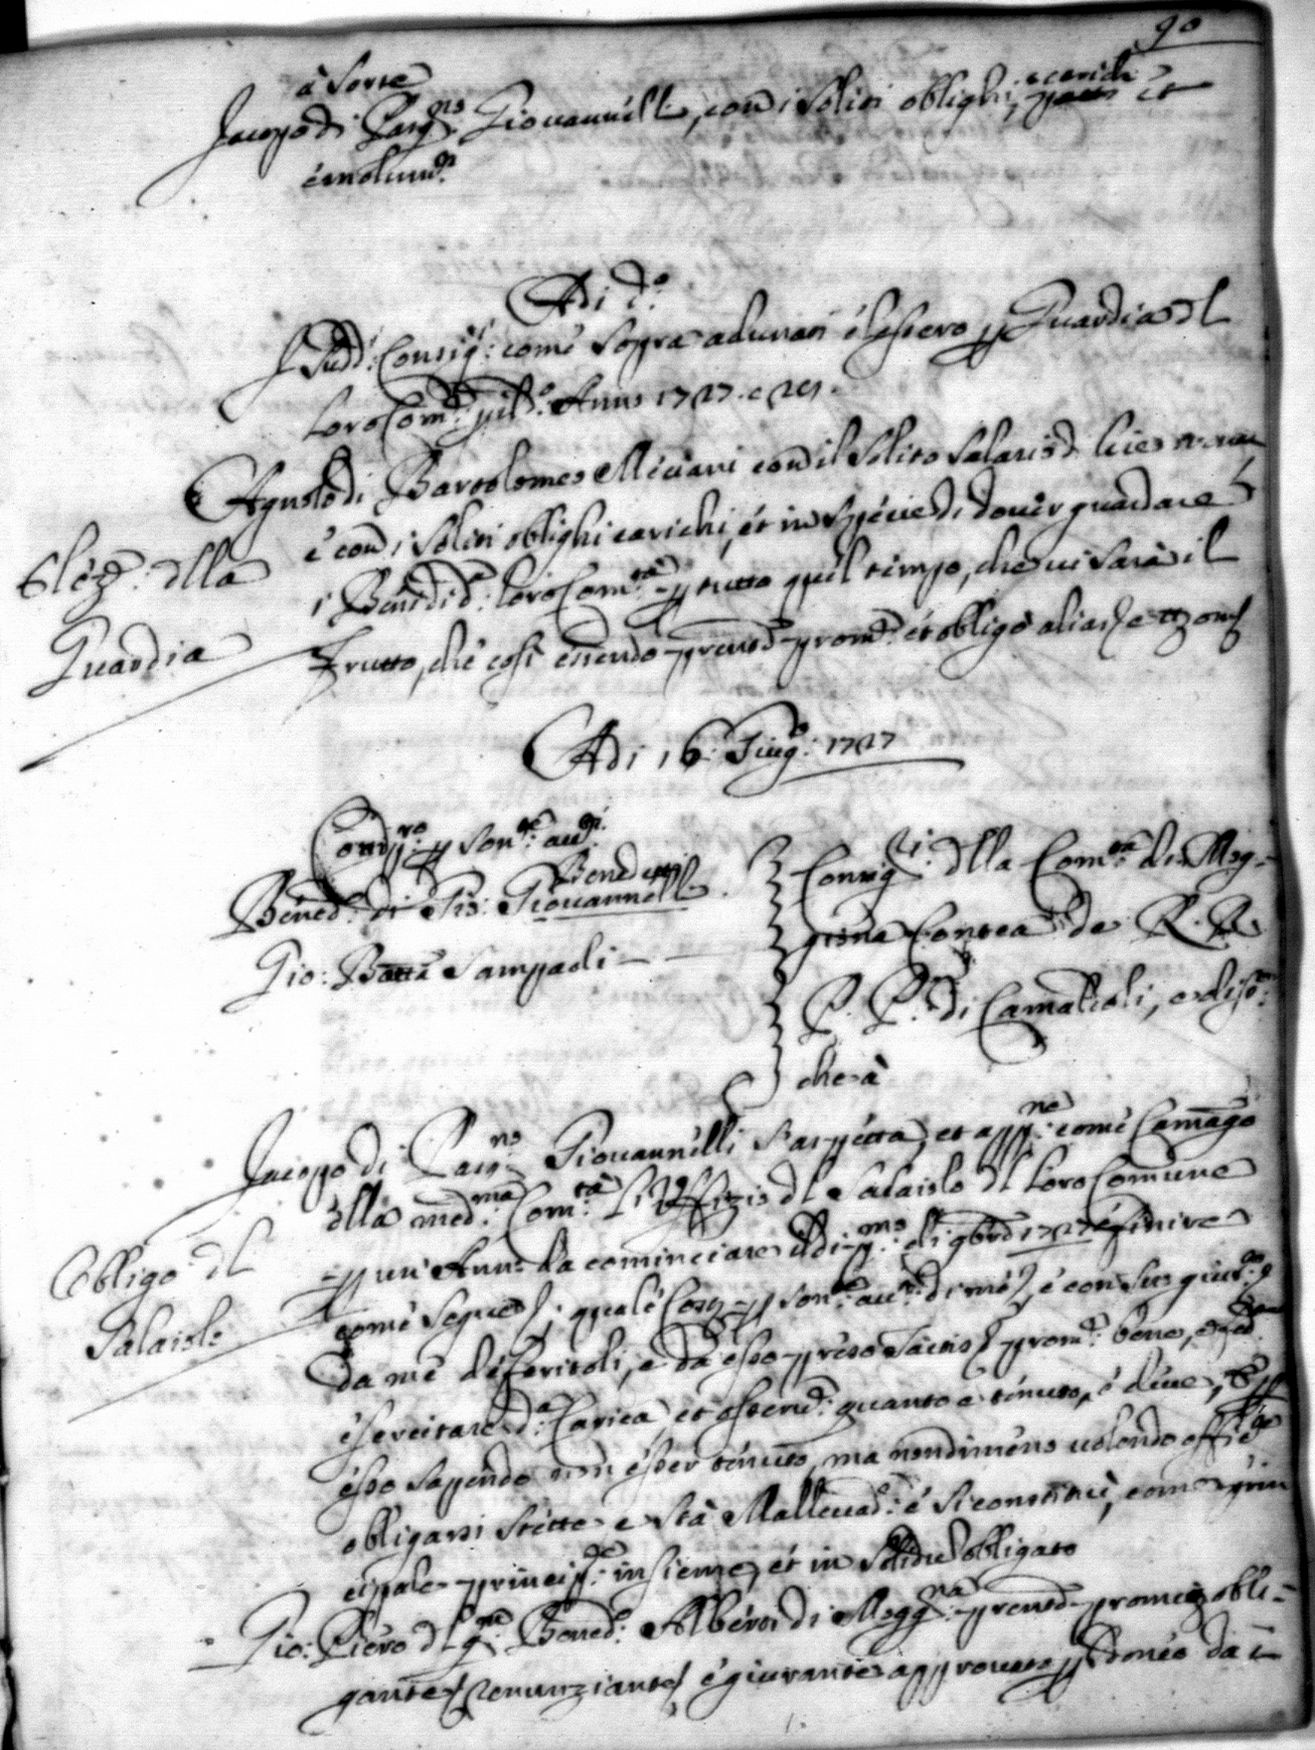 90
à sorte
Jacopo di Car:no Giovannelli, con i soliti oblighi, e carichi et
emolum:ti
Adi d:o
I sudd:i Consig:ri come sopra adunati elessero p Guardia dl
loro Com:e p il d:o Anno 1727. e 28.
Agnolo di Bartolomeo Meciani con il solito salario di lire
e con i soliti oblighi carichi, et in specie di dover guardare
i Beni di d:a loro Com:tà p tutto quel tempo, che vi sarà il
frutto, che così essendo prensd prom:e et obligò alias et om
Elez:e dlla
Guardia
Adi 16: Giug:o 1727
Comp:ro p son:te aud:i
Benedetti
Bened:o di Gio: Giovannelli
Gio: Batta Sampaoli
Consig:ri dlla Com:tà di Mog-
giona Contea de R. R.
P. P. di Camaldoli, e diso:
che à
Jacopo di Car:no Giovannelli s'aspetta, et app:ne come Camarlgo
dlla med:ma Com:tà l'Uffizio dl Salaiolo dl loro Comune
p un' Anno da cominciare il dì p:mo di 9bre 1727 e finire
come segue; quale Cosp p son:te au:ti di me, e con suo giur:to
da me deferitoli, e da esso preso tactis prom:e bene, e fed:te
esercitare d:a Carica et osserv:e quanto è tenuto, e deve, e p
esso sapendo non esser tenuto, ma nondimeno volendo effic:te
obligarsi stette e stà Mallevad:e e si constituì, come prin
cipale princip:te insieme, et in solidu obligato
Gio: Piero dl q:m Bened:o Alberti di Mogg:na prensd promitt obli-
gante renunziante e giurante approvato p Idoneo da i
Obligo dl
Salaiolo